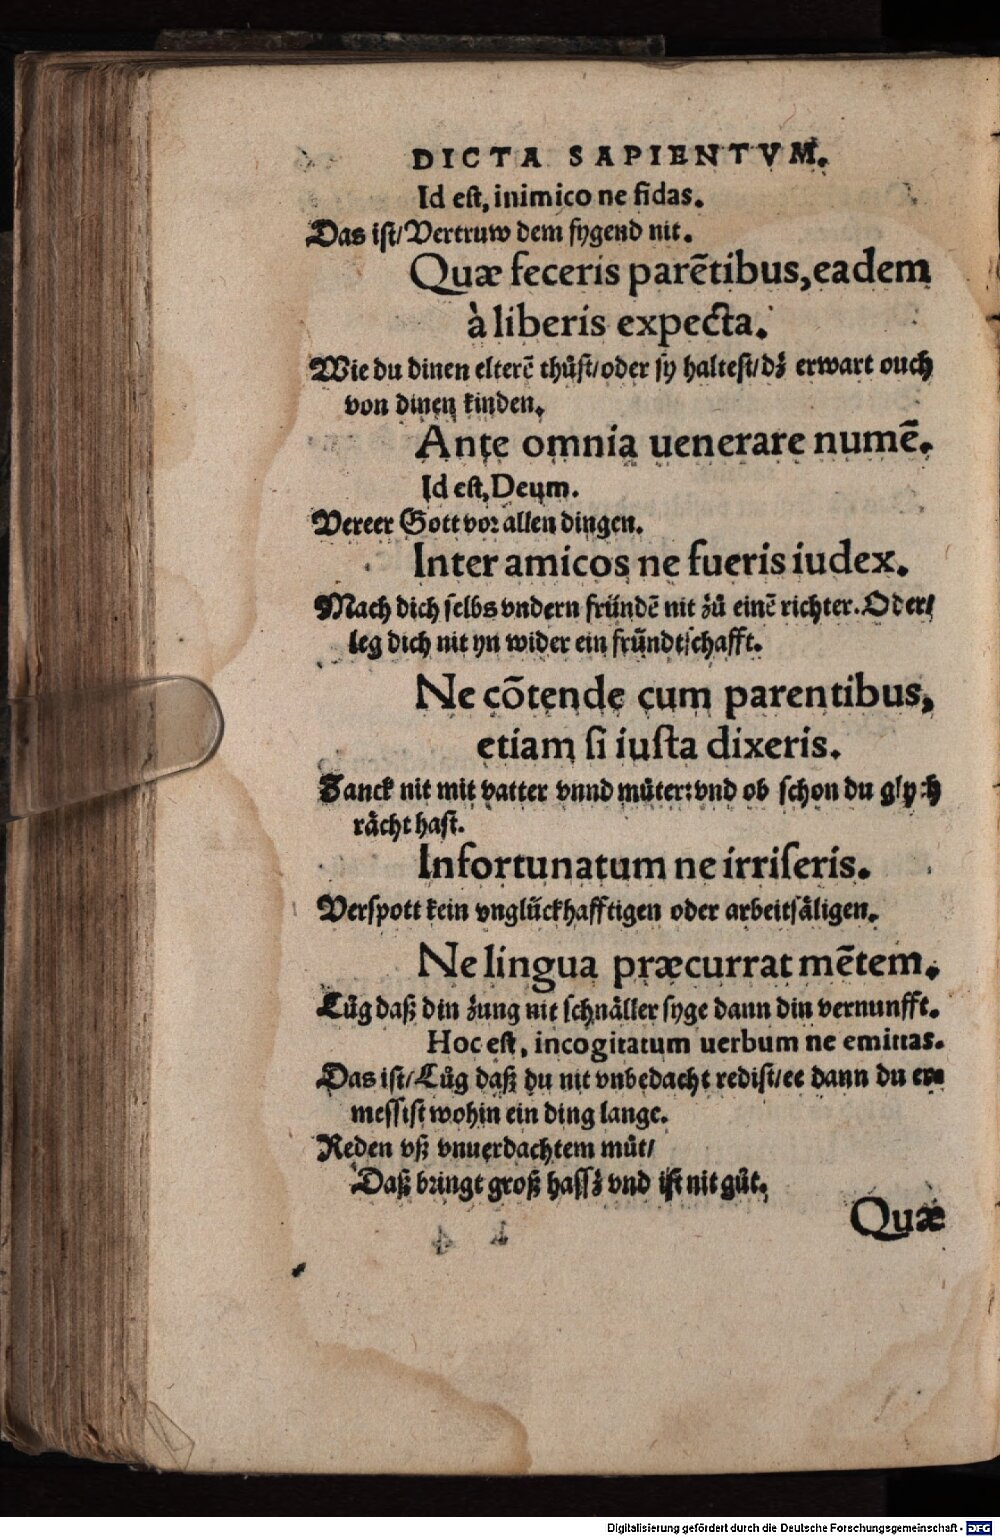 DICTA SAPIENTVM.
Id eſt, inimico ne fidas.
Das iſt/ Vertruw dem fygend nit.
Quæ feceris parẽtibus, eadem
à liberis expecta.
Wie du dinen elterẽ thůſt/ oder ſy halteſt/ dz erwart ouch
von dinen kinden.
Ante omnia uenerare numẽ.
Id eſt, Deum.
Vereer Gott vor allen dingen.
Inter amicos ne fueris iudex.
Mach dich ſelbs vndern fründẽ nit zů einẽ richter. Oder/
leg dich nit yn wider ein fründtſchafft.
Ne cõtende cum parentibus,
etiam ſi iuſta dixeris.
Zanck nit mit vatter vnnd můter: vnd ob ſchon du glych
rächt haſt.
Infortunatum ne irriſeris.
Verſpott kein vnglückhafftigen oder arbeitſäligen.
Ne lingua præcurrat mẽtem.
Lůg daß din zung nit ſchnäller ſyge dann din vernunfft.
Hoc eſt, incogitatum uerbum ne emittas.
Das iſt/ Lůg daß du nit vnbedacht rediſt/ ee dann du er=
meſſiſt wohin ein ding lange.
Reden vß vnuerdachtem můt/
Daß bringt groß haſſz vnd iſt nit gůt.
Quæ
Digitalisierung gefördert durch die Deutsche Forschungsgemeinschaft - DFG